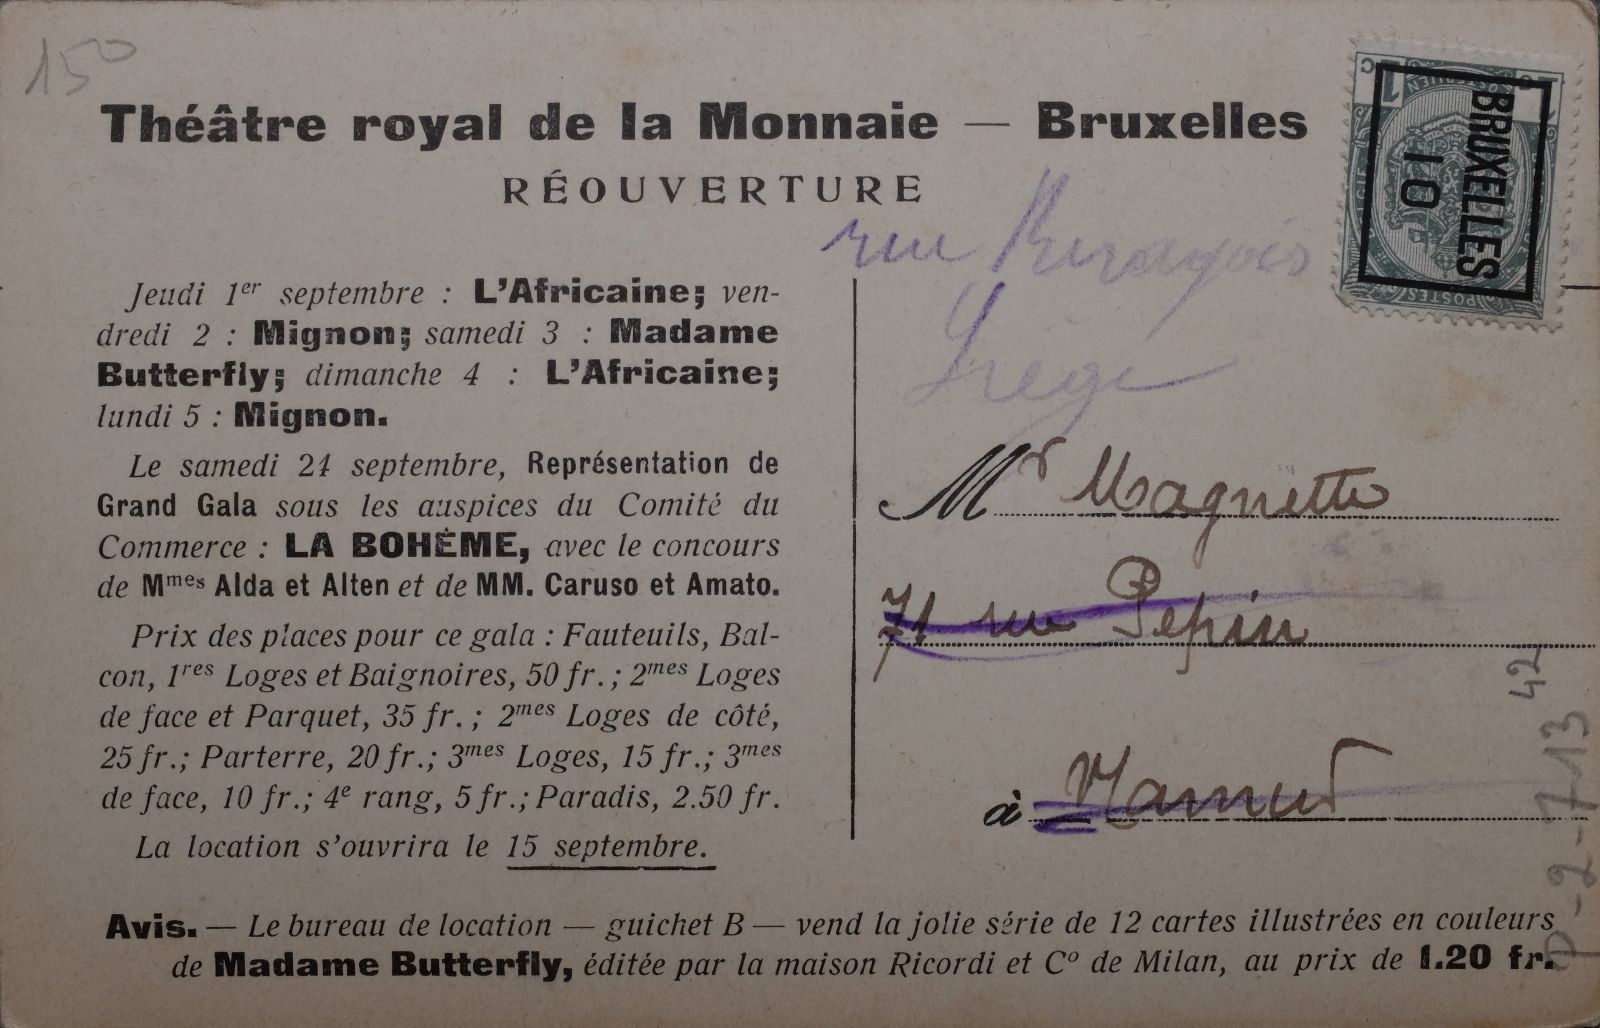 150
Théâtre royal de la Monnaie — Bruxelles
RÉOUVERTURE
Jeudi 1er septembre : L'Africaine; ven-
dredi 2 : Mignon; samedi 3 : Madame
Butterfly; dimanche 4 : L'Africaine;
lundi 5 : Mignon.
Le samedi 24 septembre, Représentation de
Grand Gala sous les auspices du Comité du
Commerce : LA BOHÊME, avec le concours
de Mmes Alda et Alten et de MM. Caruso et Amato.
Prix des places pour ce gala : Fauteuils, Bal-
con, 1res Loges et Baignoires, 50 fr. ; 2mes Loges
de face et Parquet, 35 fr. ; 2mes Loges de côté,
25 fr.; Parterre, 20 fr.; 3mes Loges, 15 fr.; 3mes
de face, 10 fr.; 4e rang, 5 fr.; Paradis, 2.50 fr.
La location s'ouvrira le 15 septembre.
1 c
BRUXELLES
10
POSTES
rue
Liège
Mr Magnette
71 rue Pepin
à Namur
42
P-2-713
Avis. — Le bureau de location — guichet B — vend la jolie série de 12 cartes illustrées en couleurs
de Madame Butterfly, éditée par la maison Ricordi et Co de Milan, au prix de 1.20 fr.